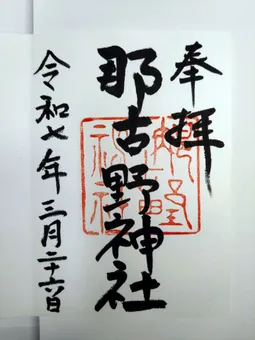 奉拝
那古野神社
令和七年三月二十六日